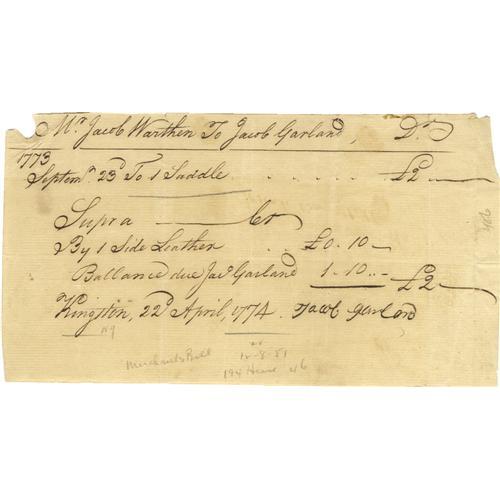 Mr. Jacob Warthen To Jacob Garland, Dr.
1773
Septemr. 23d To 1 Saddle . . . . . £2 —
Supra — Cr
By 1 Side Leather . . £0.10 —
Ballance due Jac. Garland 1.10 .. — £2 —
Kingston, 22d April, 1774. Jacob Garland
Merchants Bill
12-8-51
194
46